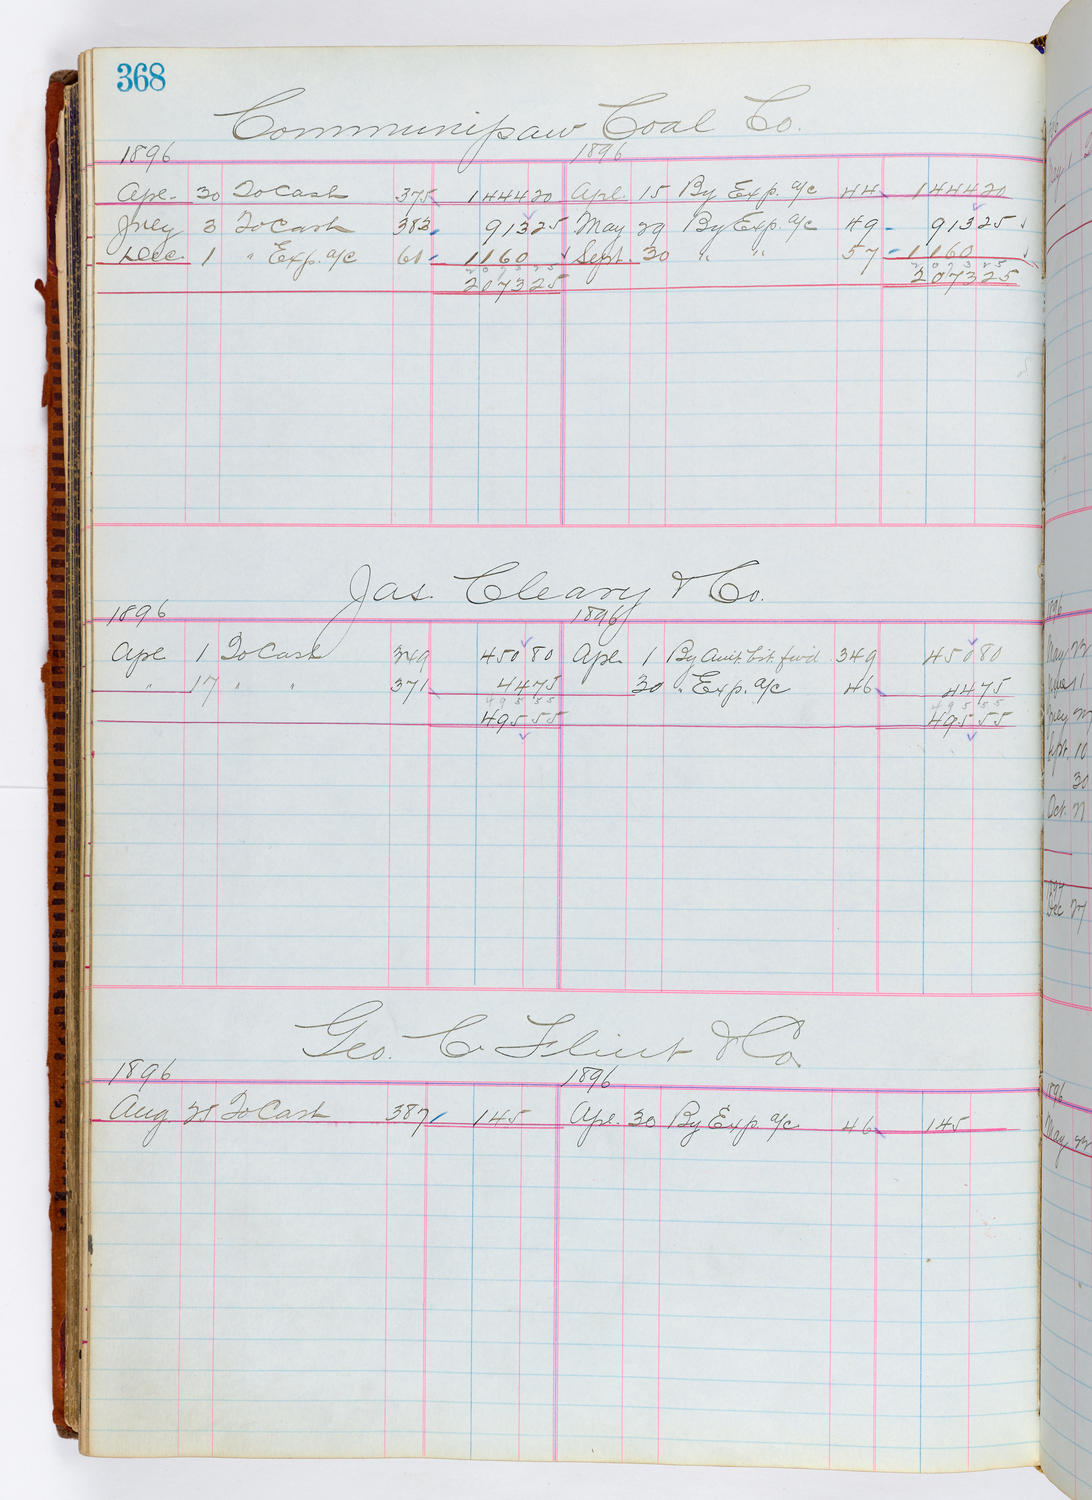 368
Communipaw Coal Co.
1896 1896
Apl. 30 To Cash 375 1444 20 Apl. 15 By Exp. a/c 44 1444 20
July 3 To Cash 383 913 25 May 29 By Exp. a/c 49 913 25
Dec. 1 " Exp. a/c 61 1160 Sept. 30 " " 57 1160
2073 25 2073 25
2073 25 2073 25
Jas. Cleary & Co.
1896 1896
Apl 1 To Cash 349 450 80 Apl. 1 By Amt. bt. fwd. 349 450 80
" 17 " " 371 44 75 30 " Exp. a/c 46 44 75
495 55 495 55
495 55 495 55
Geo. C. Flint & Co.
1896 1896
Aug. 25 To Cash 387 145 Apl. 30 By Exp. a/c 46 145
1896
May 22
11
10
30
Oct. 27
Dec 27
1896
May 22